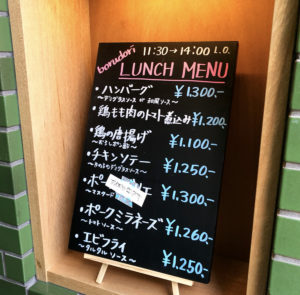 borudori
11:30→14:00 L.O.
LUNCH MENU
・ハンバーグ ¥1,300.-
〜デミグラスソース or 和風ソース〜
・鶏もも肉のトマト煮込み ¥1,200.-
・鶏の唐揚げ ¥1,100-
〜おろしポン酢〜
・チキンソテー ¥1,250-
デミグラスソース〜
・ポー ¥1,300.-
〜マスタード
・ポークミラネーズ ¥1,260.-
〜トマトソース〜
・エビフライ ¥1,250-
〜タルタルソース〜